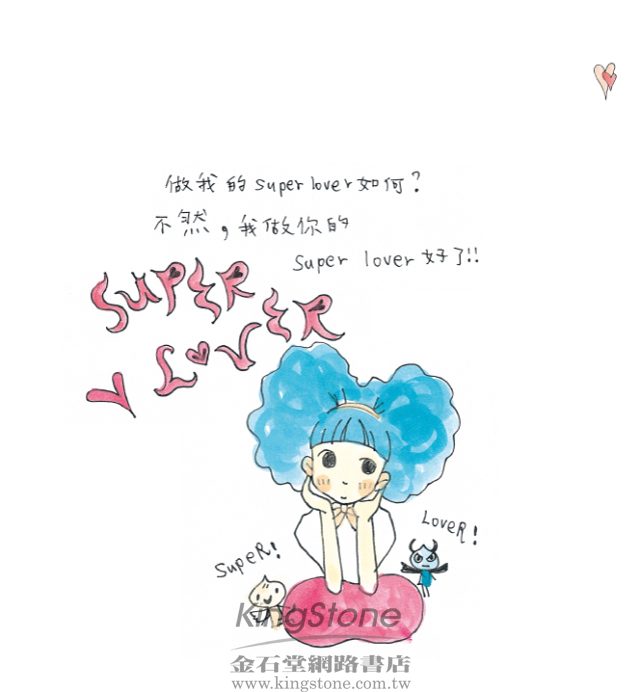 做我的super lover如何?
不然，我做你的
super lover好了!!
SUPER
LOVER
LoveR!
SupeR!
KingStone
金石堂網路書店
www.kingstone.com.tw